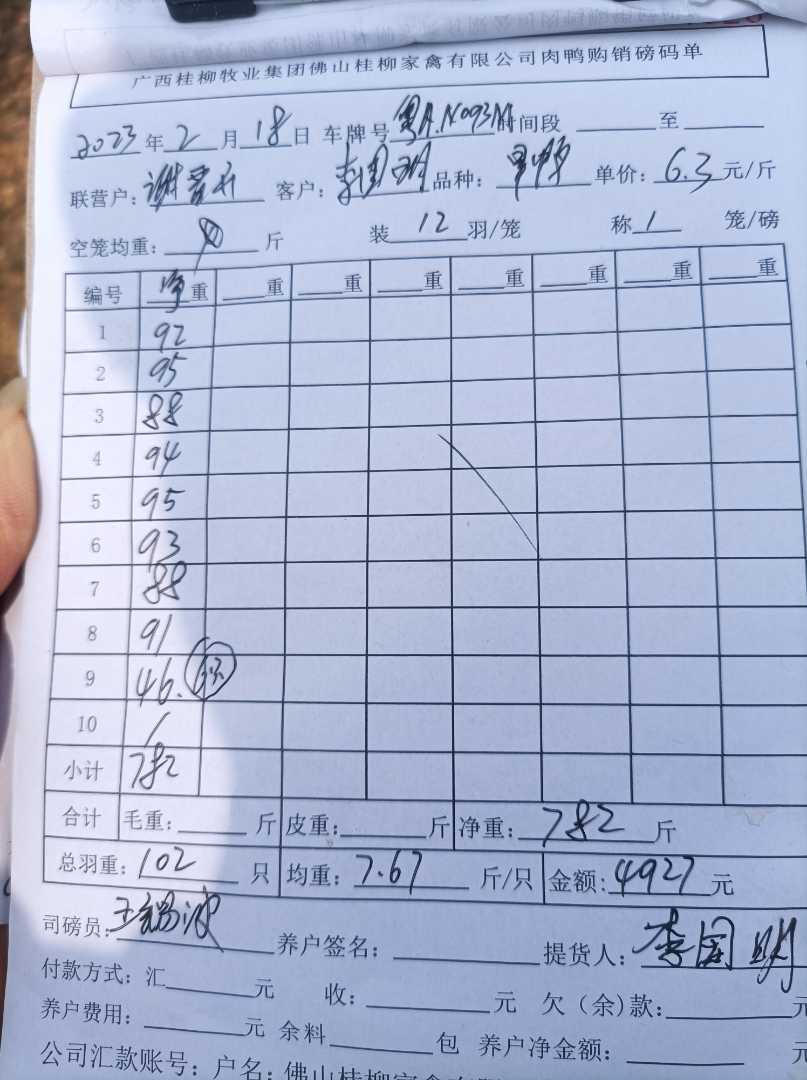 广西桂柳牧业集团佛山桂柳家禽有限公司肉鸭购销磅码单
2023年2月18日 车牌号粤A.N093M 时间段 至
联营户: 谢 客户: 李国明 品种: 单价: 6.3元/斤
空笼均重: 斤 装12羽/笼 称1笼/磅
编号 净重 重 重 重 重 重 重 重
1 92
2 95
3 88
4 94
5 95
6 93
7 88
8 91
9 46.
10 /
小计 782
合计 毛重: 斤 皮重: 斤 净重: 782斤
总羽重: 102只 均重: 7.67斤/只 金额: 4927元
司磅员: 王 波 养户签名: 提货人: 李国明
付款方式: 汇 元 收: 元 欠(余)款: 元
养户费用: 元 余料 包 养户净金额: 元
公司汇款账号: 户名: 佛山桂柳家禽有限